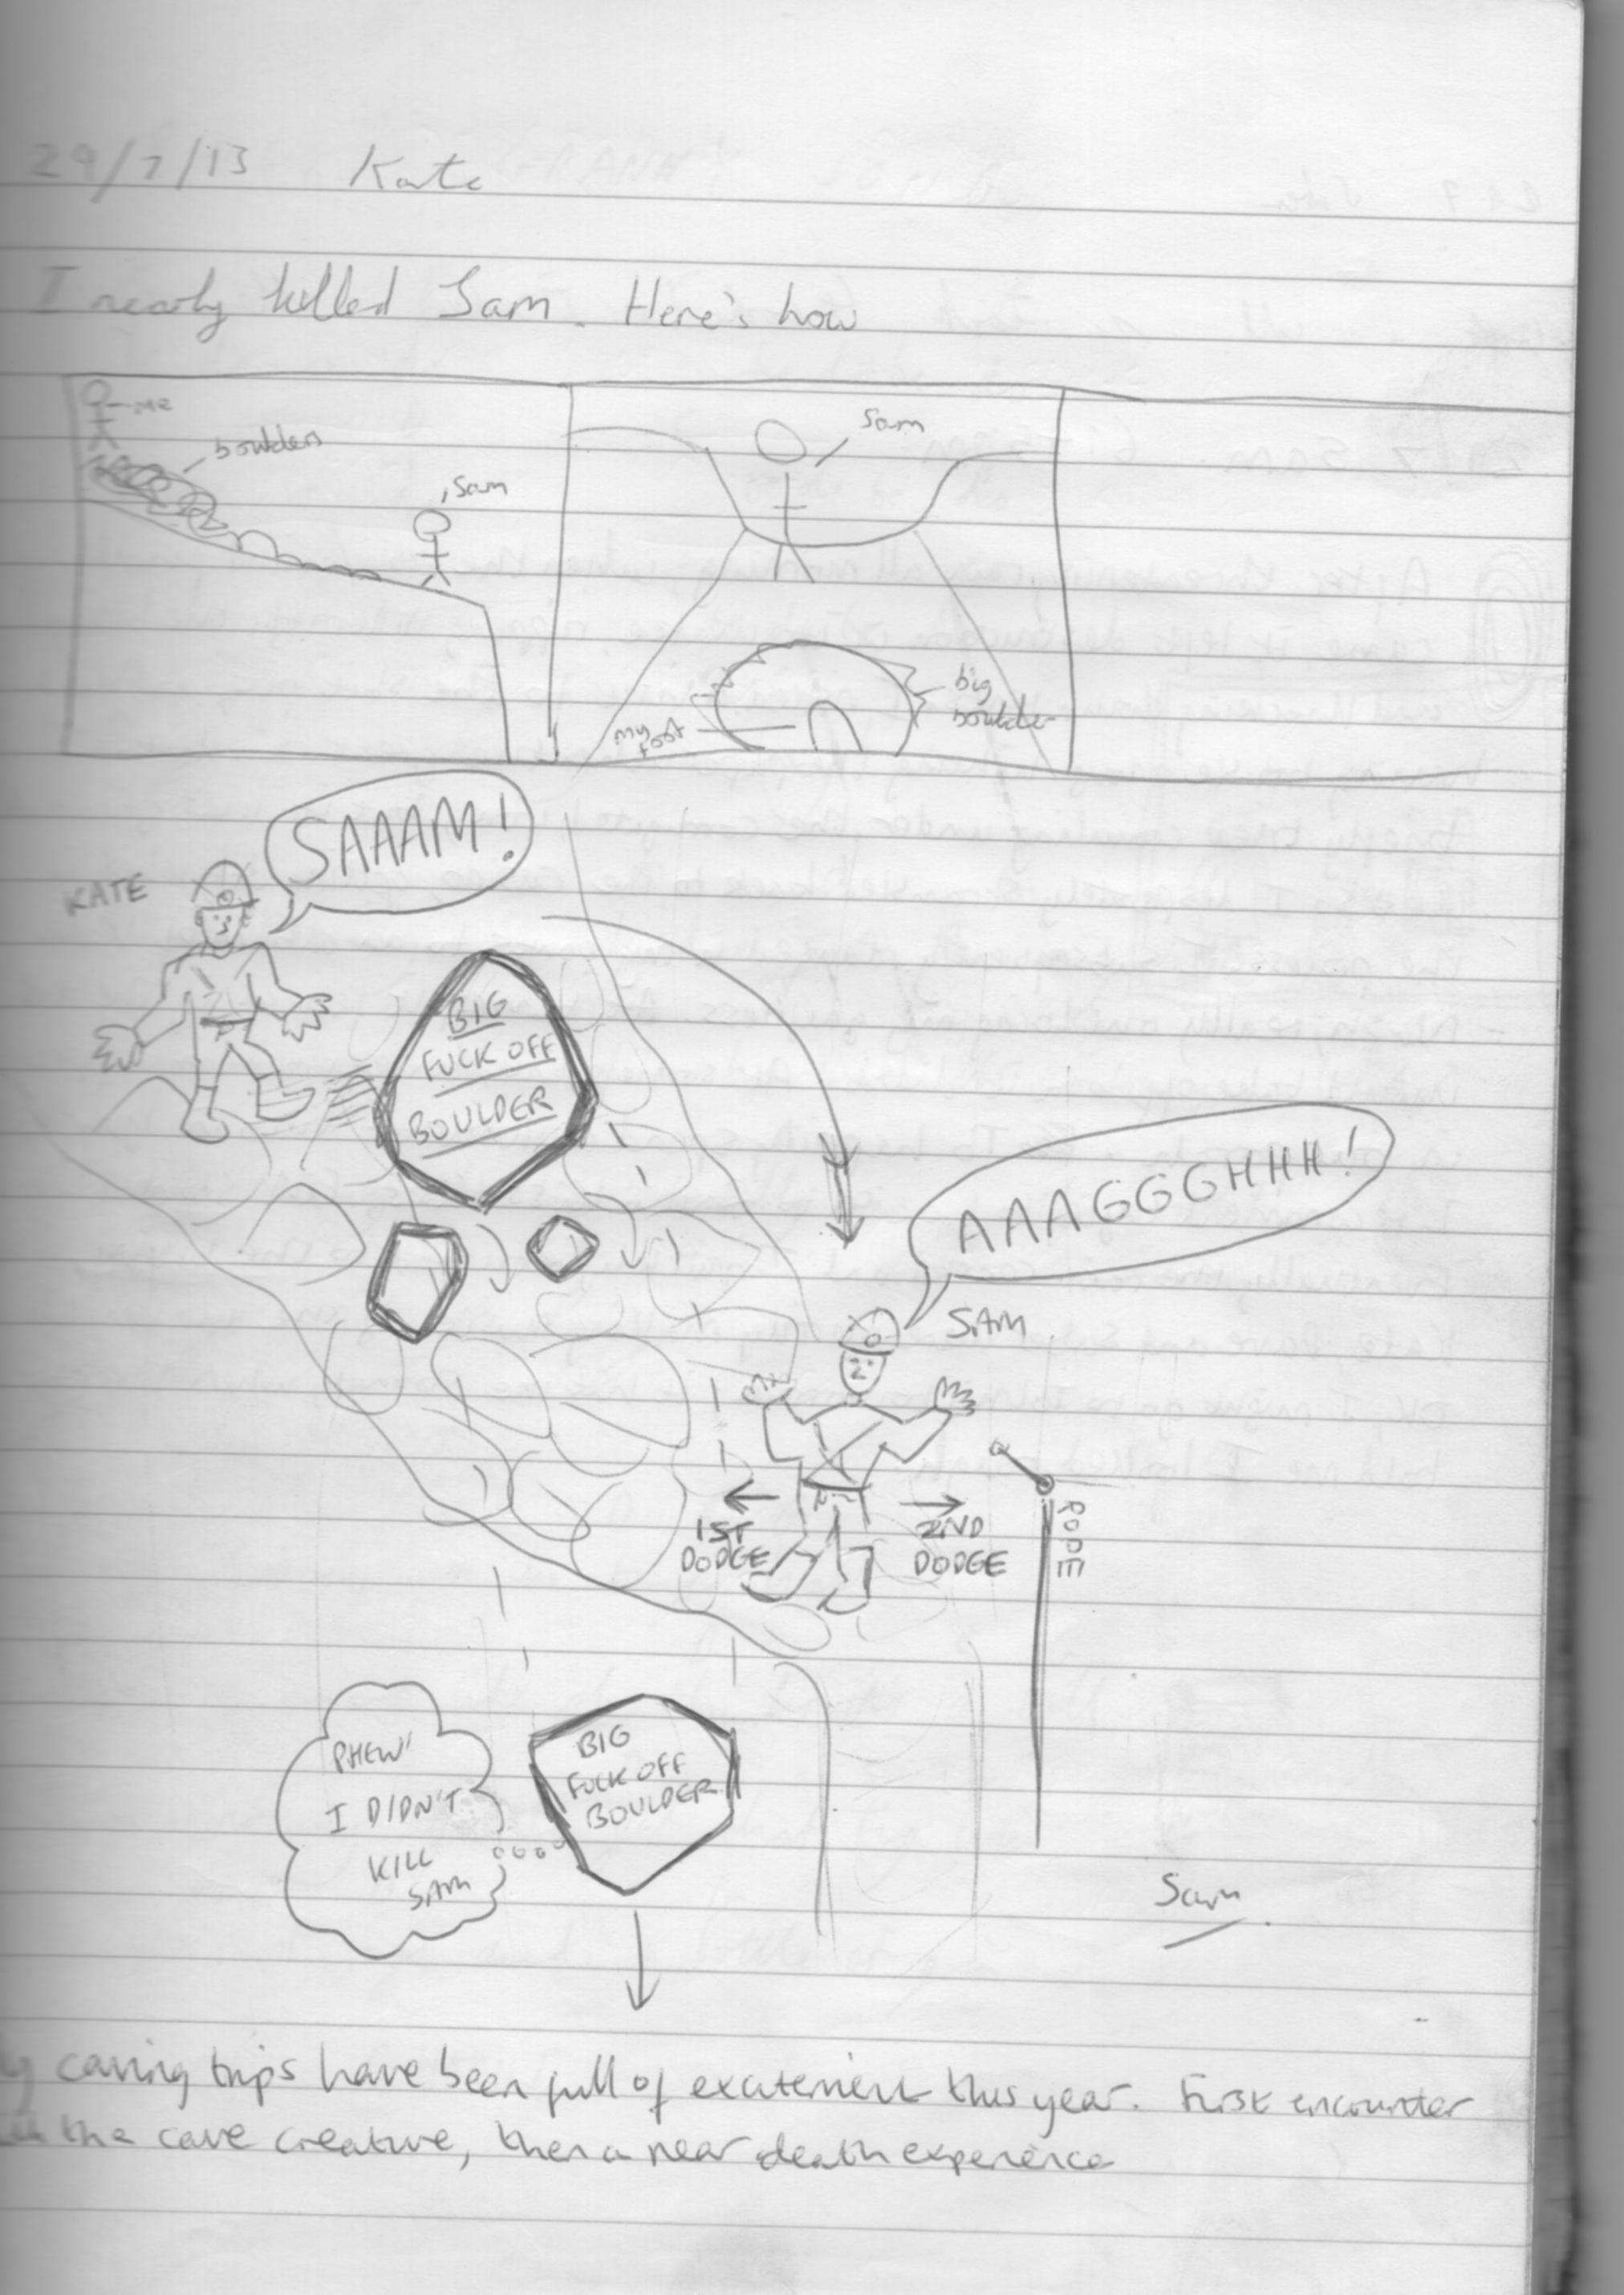 29/7/13 Kate
I nearly killed Sam. Here's how
me
boulders
Sam
Sam
my foot
big boulder
SAAAM!
KATE
BIG
FUCK OFF
BOULDER
AAAGGGHHH!
SAM
1ST
DODGE
2ND
DODGE
ROPE
PHEW!
I DIDN'T
KILL
SAM
BIG
FUCK OFF
BOULDER
Sam
caving trips have been full of excitement this year. First encounter
the cave creature, then a near death experience